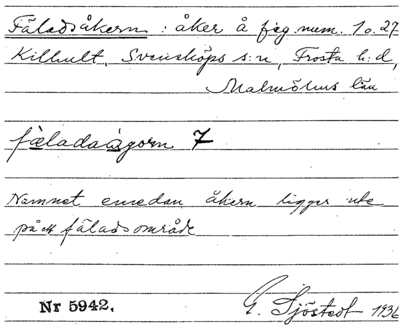 Fäladsåkern: åker å fäg. num. 1 o. 27
Killhult, Svensköps s:n, Frosta h:d,
Malmöhus län
fæladaågorn 7
Namnet emedan åkern ligger ute
på ett fäladsområde
Nr 5942.
G. Sjöstedt 1936